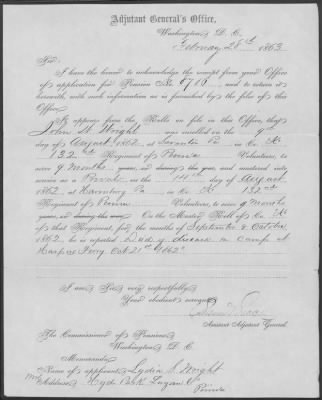 Adjutant General's Office,
Washington, D. C.
February 28th 1863
Sir:
I have the honor to acknowledge the receipt from your Office
of application for Pension No. 6716 and to return it
herewith, with such information as is furnished by the files of this
Office.
It appears from the Rolls on file in this Office, that
John W. Wright was enrolled on the 9th
day of August 1862 at Scranton Pa in Co. K
132nd Regiment of Penna Volunteers, to serve
9 months years, or during the war, and mustered into
service as a Private on the 14th day of August,
1862, at Harrisburg Pa in Co. K 132nd
Regiment of Penna Volunteers, to serve 9 months
years, or during the war. On the Muster Roll of Co. K
of that Regiment, for the months of September & October
1862, he is reported Died of disease in Camp at
Harpers Ferry Oct 21st 1862
I am, Sir, very respectfully,
Your obedient servant,
Assistant Adjutant General.
The Commissioner of Pensions,
Washington, D. C.
Memoranda:
Name of applicant, Lydia A. Wright
Address, Hyde Park Luzerne Co
Penna